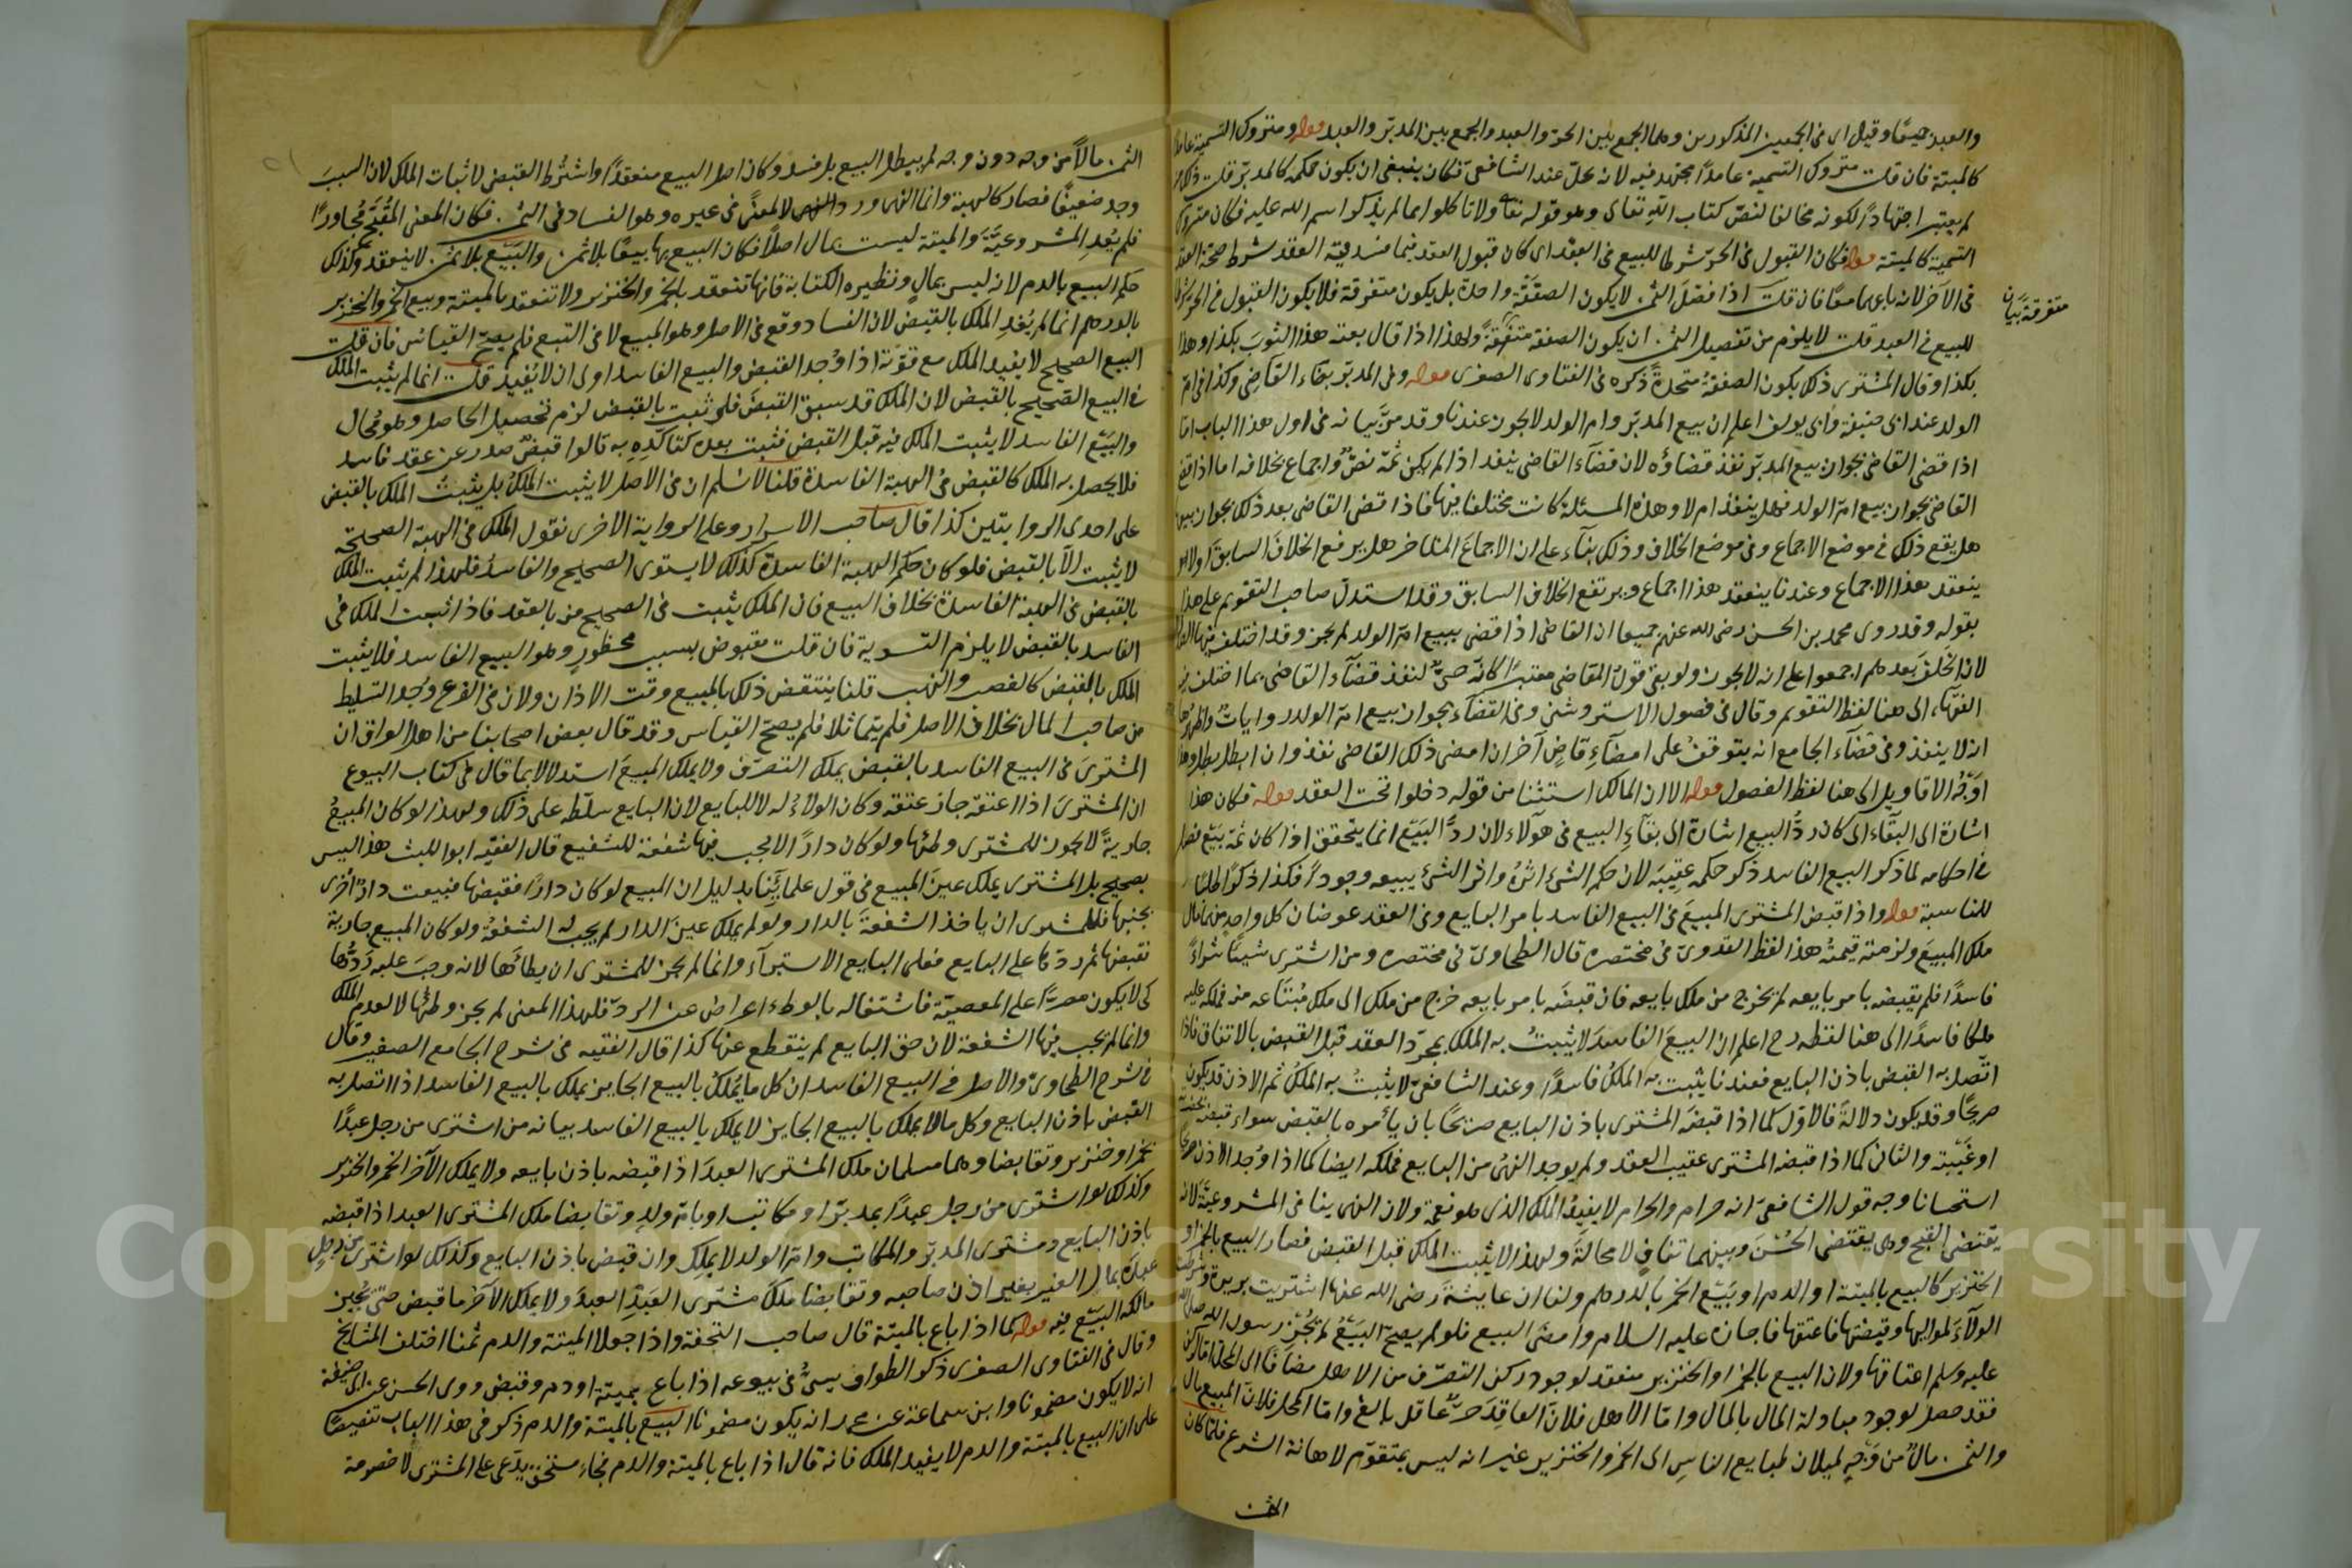 والعبد جميعًا وقيل اى فى الجمعين المذكورين وهما الجمع بين الحرّ والعبد والجمع بين المدبّر والعبد قوله ومتروك التسمية عامدًا
كالميتة فان قلت متروك التسمية عامدًا مجتهد فيه لانه يحلّ عند الشافعىّ فكان ينبغى ان يكون حكمه كالمدبّر قلت ذلك
لم يعتبر اجتهادًا لكونه مخالفا لنصّ كتاب اللّه تعالى وهو قوله تعالى ولا تاكلوا مما لم يذكر اسم الله عليه فكان متروك
التسمية كالميتة قوله فكان القبول فى الحرّ شرطا للبيع فى العبد اى كان قبول العقد فيما فسد فيه العقد شرط صحة العقد
فى الآخر لانه باعهما معًا فان قلت اذا فصّل الثمن لا يكون الصفقة واحدة بل يكون متفرقة فلا يكون القبول فى الحر شرطا
متفرقة بيان
للبيع فى العبد قلت لا يلزم من تفصيل الثمن ان يكون الصفقة متفرقةً ولهذا اذا قال بعته هذا الثوبَ بكذا وهذا
بكذا وقال المشترى ذلك يكون الصفقةُ متحدةً ذكره فى الفتاوى الصغرى قوله وفى المدبّر بقضاء القاضى وكذا فى امّ
الولد عند ابى حنيفة وابى يوسف اعلم ان بيع المدبّر وام الولد لا يجوز عندنا وقد مرّ بيانه فى اول هذا الباب امّا
اذا قضى القاضى بجواز بيع المدبّر نفذ قضاؤه لان قضآء القاضى ينفذ اذا لم يكن ثمّة نصٌّ واجماع بخلافه اما اذا قضى
القاضى بجواز بيع امّ الولد فهل ينفذ ام لا وهذه المسئلة كانت مختلفا فيها فاذا قضى القاضى بعد ذلك بجواز بيعها
هل يقع ذلك فى موضع الاجماع وفى موضع الخلاف وذلك بنآء على ان الاجماعَ المتاخر هل يرفع الخلافَ السابقَ اولا
ينعقد هذا الاجماع وعندنا ينعقد هذا اجماع ويرتفع الخلاف السابق وقد استدلّ صاحب التقويم على هذا
بقوله وقد روى محمد بن الحسن رضى الله عنهم جميعا ان القاضى اذا قضى ببيع امّ الولد لم يجز وقد اختلف فيها
لان الخَلَفَ بعدهم اجمعوا على انه لا يجوز ولو بقى قولُ القاضى معتبرًا كانّه حىٌّ لنفذ قضآء القاضى بما اختلف فيه
الفقهآء الى هنا لفظ التقويم وقال فى فصول الاستروشنى وفى القضآء بجواز بيع امّ الولد رواياتٌ واظهرُها
انه لا ينفذ وفى قضآء الجامع انه يتوقف على امضآءِ قاضٍ آخر ان امضى ذلك القاضى نفذ وان ابطل بطل وهذا
اوجَهُ الاقاويل الى هنا لفظ الفصول قوله الا ان المالك استثنا من قوله دخلوا تحت العقد قوله فكان هذا
اشارة الى البقآء اى كان ردُّ البيع اشارة الى بقآءِ البيع فى هؤلاء لان ردَّ البَيْع انما يتحقق اذا كان ثمّة بيع فصل
فى احكامه لما ذكر البيع الفاسد ذكر حكمه عقيبَه لان حكم الشئ اثرُهُ واثر الشئ يتبعه وجودًا فكذا ذكرًا طلبًا
للمناسبة قوله واذا قبض المشترى المبيعَ فى البيع الفاسد بامر البايع وفى العقد عوضان كل واحد منهما مال
ملك المبيعَ ولزمته قيمتُه هذا لفظ القدورىّ فى مختصره قال الطحاوىّ فى مختصره ومن اشترى شيئًا شراءً
فاسدًا فلم يقبضه بامر بايعه لم يخرج من ملك بايعه فان قبضَه بامر بايعه خرج من ملك الى ملك مُبْتَاعه منه فملكه عليه
ملكا فاسدًا الى هنا لفظه رح اعلم ان البيعَ الفاسدَ لا يثبتُ به الملك بمجرّد العقد قبل القبض بالاتفاق فاذا
اتّصل به القبض باذن البايع فعندنا يثبت به الملكُ فاسدًا وعند الشافعىّ لا يثبتُ به الملكُ ثم الاذن قد يكون
صريحًا وقد يكون دلالةً فالاوّل كما اذا قبضَه المشترى باذن البايع صريحًا بان يأمره بالقبض سواء قبضه بحضرته
او غيبته والثانى كما اذا قبضه المشترى عقيب العقد ولم يوجد النهىُ من البايع فملكه ايضا كما اذا وُجد الاذن صريحًا
استحسانا وجه قول الشافعىّ انه حرام والحرام لا يفيدُ الملك الذى هو نعمة ولان النهى ينافى المشروعيّة لانه
يقتضى القبح وهى يقتضى الحُسْنَ وبينهما تنافٍ لا محالةَ ولهذا لا يثبت الملك قبل القبض فصار البيع بالخمر او
الخنزير كالبيع بالميتة او الدم او بيع الخمر بالدرهم ولنا ان عايشةَ رضى الله عنها اشتريت بريرة وشرطت
الولآءَ لمواليها وقبضتها فاعتقها فاجازه عليه السلام وامضى البيع فلو لم يصحّ البيعُ لم يُجِزْ رسول الله صلى الله
عليه وسلم اعتاقها ولان البيع بالخمر او الخنزير منعقد لوجود ركن التصرّف من الاهل مضافا الى المحل اما الركن
فقد حصل لوجود مبادلة المال بالمال وامّا الاهل فلانّ العاقِدَ حرّ عاقل بالغ وامّا المحل فلانّ المبيع مال
والثمن مالٌ من وجهٍ لميلان طبايع الناسِ الى الخمر والخنزير غير انه ليس بمتقوّم لاهانة الشرع فلمّا كان
الثمن
الثمن مالاً من وجه دون وجه لم يبطل البيع بل فسد وكان اصل البيع منعقدًا واشتُرط القبض لاثبات الملك لان السببَ
وجد ضعيفًا فصار كالهبة وانما النهى ورد لا لمعنًى فى غيره وهو الفساد فى الثمن فكان المعنى المُقبّح مُجاورًا
فلم يُعدِ المشروعيّةَ والميتة ليست بمال اصلاً فكان البيع بها بيعًا بلا ثمن والبَيْع بلا ثمن لا ينعقد وكذلك
حكم البيع بالدم لانه ليس بمالٍ ونظيره الكتابة فانها تنعقد بالخمر والخنزير ولا تنعقد بالميتة وبيع الخمر والخنزير
بالدرهم انما لم يُفِدِ الملك بالقبض لان الفساد وقع فى الاصل وهو المبيع لا فى التبع فلم يصحّ القياس فان قلت
البيع الصحيح لا يفيد الملك مع قوّته اذا وُجد القبض والبيع الفاسد اولى ان لا يُفيدَ قلت انما لم يثبت الملك
فى البيع الصّحيح بالقبض لان الملك قد سبق القبضَ فلو ثبت بالقبض لزم تحصيل الحاصل وهو مُحال
والبَيْع الفاسد لا يثبت الملك فيه قبل القبض فثبت بعده كتاكّدِهِ به قالوا قبضٌ صدر عن عقد فاسد
فلا يحصل به الملك كالقبض فى الهبة الفاسدة قلنا لا نسلم ان فى الاصل لا يثبت الملك بل يثبتُ الملك بالقبض
على احدى الروايتين كذا قال صاحب الاسرار وعلى الرواية الاخرى نقول الملك فى الهبة الصحيحة
لا يثبت الّا بالقبض فلو كان حكم الهبة الفاسدة كذلك لاستوى الصحيح والفاسدُ فلهذا لم يثبت الملك
بالقبض فى الهبة الفاسدة بخلاف البيع فان الملك يثبت فى الصحيح منه بالعقد فاذا ثبت الملك فى
الفاسد بالقبض لا يلزم التسوية فان قلت مقبوض بسبب محظورٍ وهو البيع الفاسد فلا يثبت
الملك بالقبض كالغصب والنهب قلنا ينتقض ذلك بالمبيع وقت الاذان ولان فى الفرع وُجد التسليط
من صاحب المال بخلاف الاصل فلم يتماثلا فلم يصحّ القياس وقد قال بعض اصحابنا من اهل العراق ان
المشترىَ فى البيع الفاسد بالقبض يملك التصرّف ولا يملك المبيعَ استدلالا بما قال فى كتاب البيوع
ان المشترىَ اذا اعتقه جاز عتقه وكان الولآءُ له لا للبايع لان البايع سلّطه على ذلك ولهذا لو كان المبيعُ
جاريةً لا يجوز للمشترى وطئها ولو كان دارًا لا يجب فيها شفعة للشفيع قال الفقيه ابو الليث هذا ليس
بصحيح بل المشترى يملك عينَ المبيع فى قول علمائنا بدليل ان المبيع لو كان دارًا فقبضها فبيعت دارٌ اخرى
بجنبها فللمشترى ان ياخذ الشفعةَ بالدار ولو لم يملك عينَ الدار لم يجب له الشفعةُ ولو كان المبيع جارية
فقبضها ثم ردّها على البايع فعلى البايع الاستبرآء وانما لم يجز للمشترى ان يطأها لانه وجبَ عليه رَدُّها
كى لا يكون مصرًّا على المعصية فاشتغاله بالوطء اعراض عن الردّ فلهذا المعنى لم يجز وطئها لا لعدم الملك
وانما لم يجب فيها الشفعة لان حق البايع لم ينقطع عنها كذا قال الفقيه فى شرح الجامع الصغير وقال
فى شرح الطحاوىّ والاصل فى البيع الفاسد ان كل ما يُملك بالبيع الجايز يملك بالبيع الفاسد اذا اتصل به
القبض باذن البايع وكل ما لا يملك بالبيع الجايز لا يملك بالبيع الفاسد بيانه من اشترى من رجل عبدًا
بخمر او خنزير وتقابضا وهما مسلمان ملك المشترى العبدَ اذا قبضه باذن بايعه ولا يملك الآخر الخمر والخنزير
وكذلك لو اشترى من رجل عبدًا بمدبّر او مكاتب او بامّ ولدٍ وتقابضا ملك المشترى العبد اذا قبضه
باذن البايع ومشترى المدبّر والمكاتب وامّ الولد لا يملك وان قبض باذن البايع وكذلك لو اشترى من رجلٍ
عبدًا بمال الغير بغير اذن صاحبه وتقابضا ملك مشترى العَبدِ العبدَ ولا يملك الآخر ما قبض حتى يُجيز
مالكه البَيْع فيه قوله كما اذا باع بالميتة قال صاحب التحفة واذا جعلا الميتة والدم ثمنا اختلف المشايخ
وقال فى الفتاوى الصغرى ذكر الطواويسىُّ فى بيوعه اذا باع بميتة او دم وقبض روى الحسن عن ابى حنيفة
انه لا يكون مضمونا وابن سماعة عن محمد انه يكون مضمونا البيع بالميتة والدم ذكر فى هذا الباب تنصيصًا
على ان البيع بالميتة والدم لا يفيد الملك فانه قال اذا باع بالميتة والدم فجاء مستحق يدّعى على المشترى لا خصومة
Copyright © King Saud University